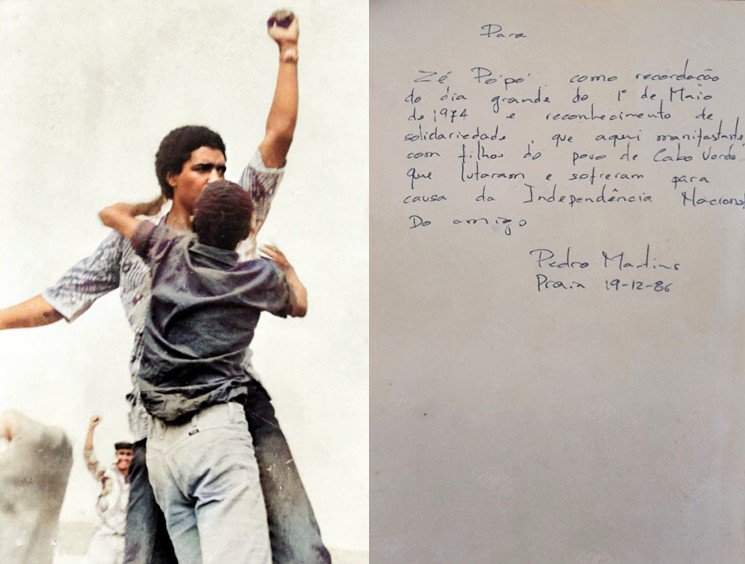 Para
Zé Pó'pó' como recordação
do dia grande do 1º de Maio
de 1974 e reconhecimento de
solidariedade, que aqui manifestaste,
com filhos do povo de Cabo Verde,
que lutaram e sofreram para
causa da Independência Nacional
Do amigo
Pedro Martins
Praia 19-12-86